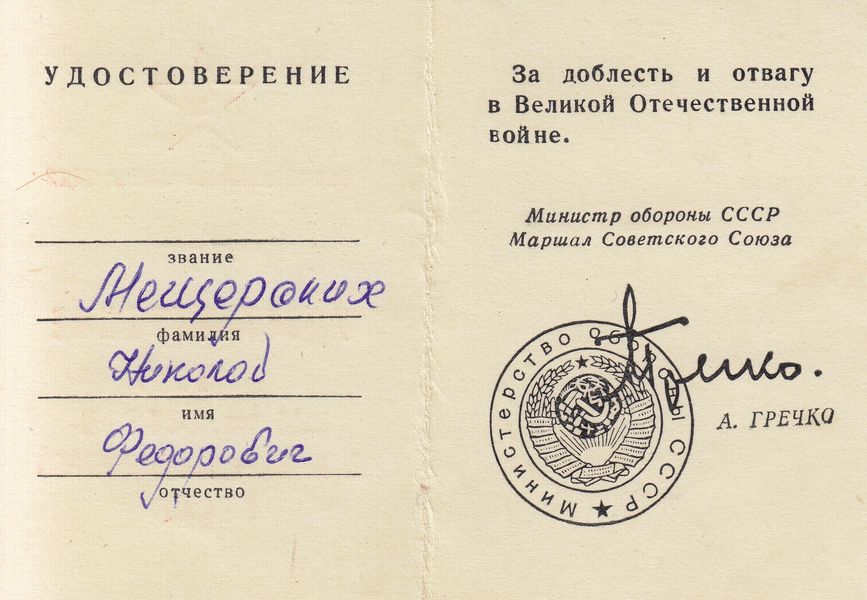 УДОСТОВЕРЕНИЕ
звание
Мещерских
фамилия
Николай
имя
Федорович
отчество
За доблесть и отвагу
в Великой Отечественной
войне.
Министр обороны СССР
Маршал Советского Союза
Министерство обороны СССР
Гречко.
А. ГРЕЧКО